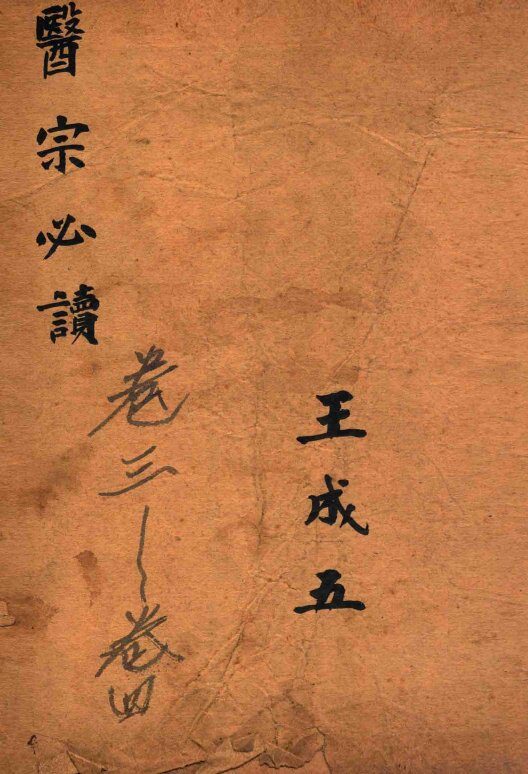 醫宗必讀
卷三〜卷四
王成五